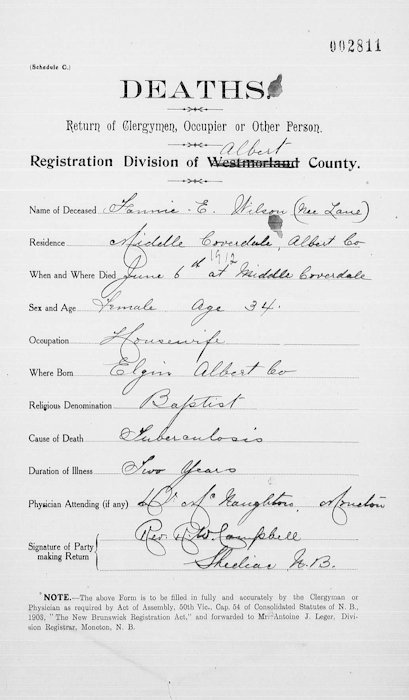 002811
(Schedule C.)
DEATHS.
Return of Clergymen, Occupier or Other Person.
Albert
Registration Division of Westmorland County.
Name of Deceased Fannie E. Wilson (Nee Lane)
Residence Middle Coverdale, Albert Co
1912
When and Where Died June 6th at Middle Coverdale
Sex and Age Female Age 34.
Occupation Housewife
Where Born Elgin Albert Co
Religious Denomination Baptist
Cause of Death Tuberculosis
Duration of Illness Two Years
Physician Attending (if any) Dr McNaughton, Moncton
Rev. H. W. Campbell
Signature of Party
making Return
Shediac N.B.
NOTE.—The above Form is to be filled in fully and accurately by the Clergyman or
Physician as required by Act of Assembly, 50th Vic., Cap. 54 of Consolidated Statutes of N. B.,
1903, "The New Brunswick Registration Act," and forwarded to Mr. Antoine J. Leger, Divi-
sion Registrar, Moncton, N. B.